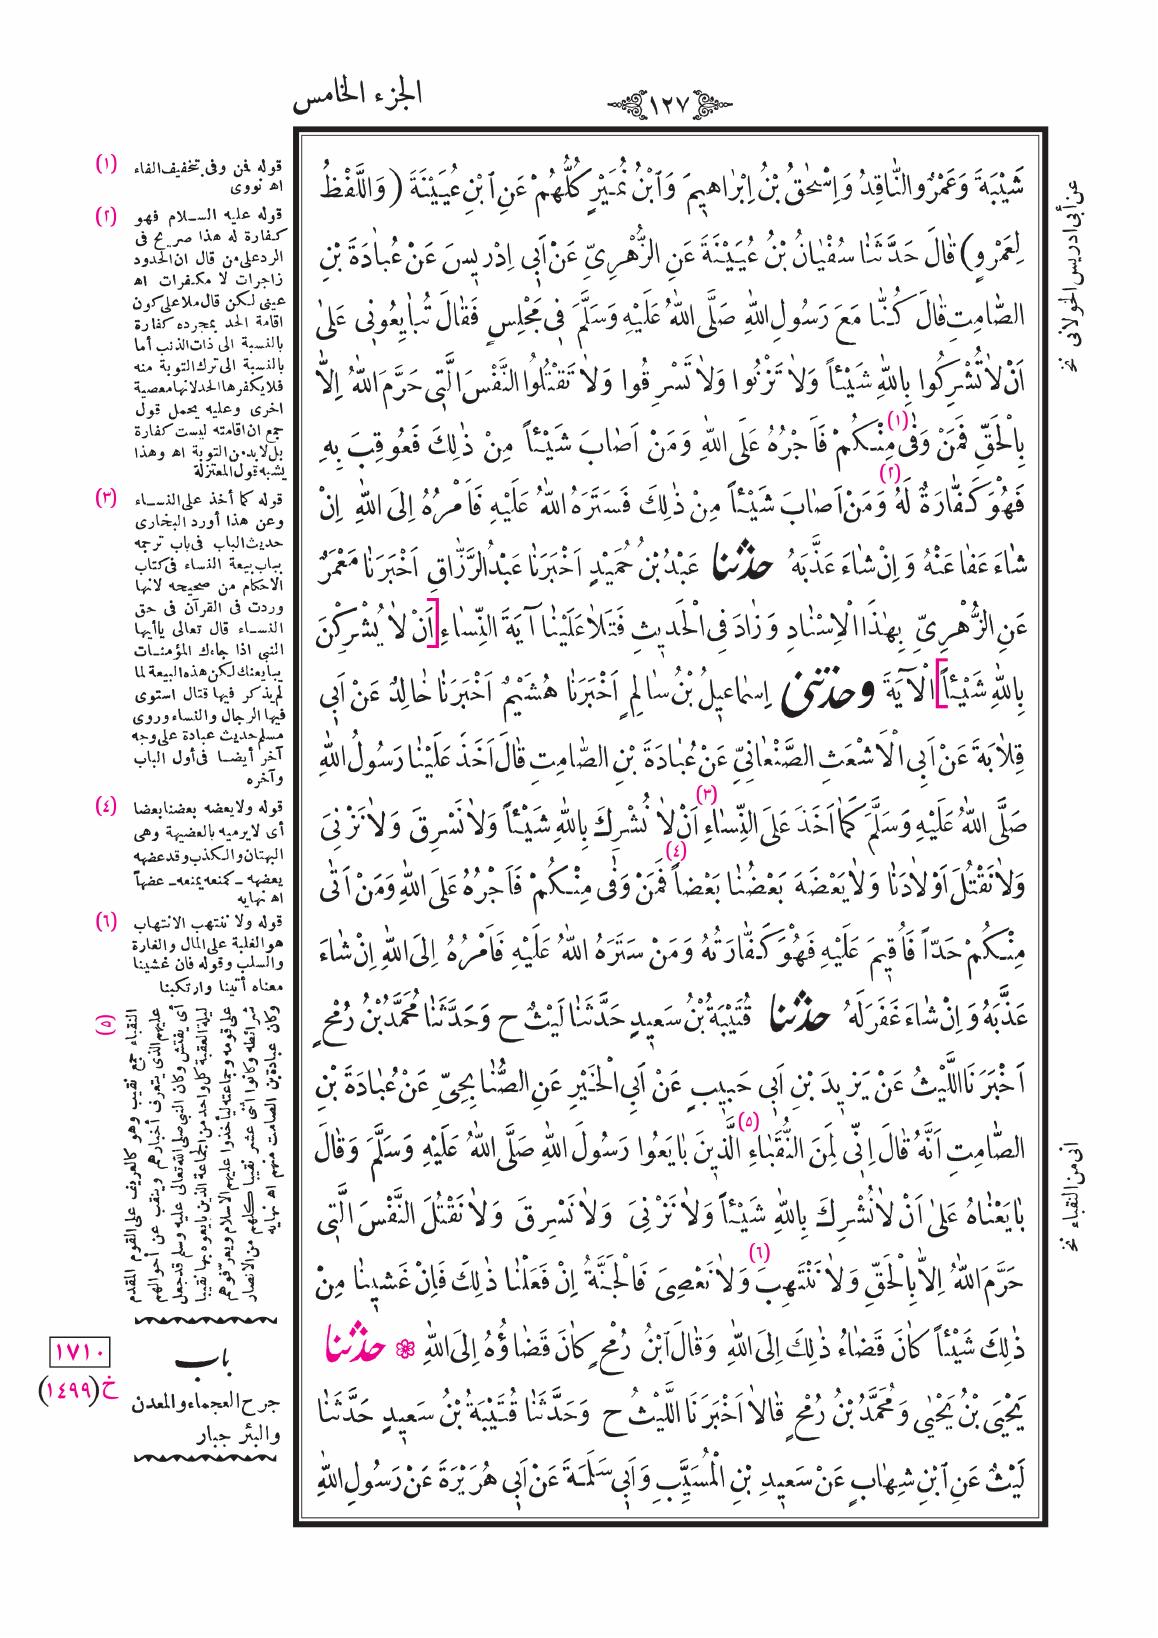 ١٢٧
الجزء الخامس
شَيْبَةَ وَعَمْرٌو النَّاقِدُ وَإِسْحٰقُ بْنُ إِبْرَاهِيمَ وَٱبْنُ نُمَيْرٍ كُلُّهُمْ عَنِ ٱبْنِ عُيَيْنَةَ (وَاللَّفْظُ
لِعَمْرٍو) قَالَ حَدَّثَنَا سُفْيَانُ بْنُ عُيَيْنَةَ عَنِ الزُّهْرِيِّ عَنْ أَبِي إِدْرِيسَ عَنْ عُبَادَةَ بْنِ
الصَّامِتِ قَالَ كُنَّا مَعَ رَسُولِ اللّٰهِ صَلَّى اللّٰهُ عَلَيْهِ وَسَلَّمَ فِي مَجْلِسٍ فَقَالَ تُبَايِعُونِي عَلَى
أَنْ لَا تُشْرِكُوا بِاللّٰهِ شَيْئاً وَلَا تَزْنُوا وَلَا تَسْرِقُوا وَلَا تَقْتُلُوا النَّفْسَ الَّتِي حَرَّمَ اللّٰهُ إِلَّا
بِالْحَقِّ فَمَنْ وَفَى (١) مِنْكُمْ فَأَجْرُهُ عَلَى اللّٰهِ وَمَنْ أَصَابَ شَيْئاً مِنْ ذٰلِكَ فَعُوقِبَ بِهِ
فَهُوَ كَفَّارَةٌ (٢) لَهُ وَمَنْ أَصَابَ شَيْئاً مِنْ ذٰلِكَ فَسَتَرَهُ اللّٰهُ عَلَيْهِ فَأَمْرُهُ إِلَى اللّٰهِ إِنْ
شَاءَ عَفَا عَنْهُ وَإِنْ شَاءَ عَذَّبَهُ حدثنا عَبْدُ بْنُ حُمَيْدٍ أَخْبَرَنَا عَبْدُ الرَّزَّاقِ أَخْبَرَنَا مَعْمَرٌ
عَنِ الزُّهْرِيِّ بِهٰذَا الْإِسْنَادِ وَزَادَ فِي الْحَدِيثِ فَتَلَا عَلَيْنَا آيَةَ النِّسَاءِ [أَنْ لَا يُشْرِكْنَ
بِاللّٰهِ شَيْئاً] الْآيَةَ وحدثني إِسْمَاعِيلُ بْنُ سَالِمٍ أَخْبَرَنَا هُشَيْمٌ أَخْبَرَنَا خَالِدٌ عَنْ أَبِي
قِلَابَةَ عَنْ أَبِي الْأَشْعَثِ الصَّنْعَانِيِّ عَنْ عُبَادَةَ بْنِ الصَّامِتِ قَالَ أَخَذَ عَلَيْنَا رَسُولُ اللّٰهِ
صَلَّى اللّٰهُ عَلَيْهِ وَسَلَّمَ كَمَا أَخَذَ عَلَى النِّسَاءِ (٣) أَنْ لَا نُشْرِكَ بِاللّٰهِ شَيْئاً وَلَا نَسْرِقَ وَلَا نَزْنِيَ
وَلَا نَقْتُلَ أَوْلَادَنَا وَلَا يَعْضَهَ بَعْضُنَا بَعْضاً (٤) فَمَنْ وَفَى مِنْكُمْ فَأَجْرُهُ عَلَى اللّٰهِ وَمَنْ أَتَى
مِنْكُمْ حَدّاً فَأُقِيمَ عَلَيْهِ فَهُوَ كَفَّارَتُهُ وَمَنْ سَتَرَهُ اللّٰهُ عَلَيْهِ فَأَمْرُهُ إِلَى اللّٰهِ إِنْ شَاءَ
عَذَّبَهُ وَإِنْ شَاءَ غَفَرَ لَهُ حدثنا قُتَيْبَةُ بْنُ سَعِيدٍ حَدَّثَنَا لَيْثٌ ح وَحَدَّثَنَا مُحَمَّدُ بْنُ رُمْحٍ
أَخْبَرَنَا اللَّيْثُ عَنْ يَزِيدَ بْنِ أَبِي حَبِيبٍ عَنْ أَبِي الْخَيْرِ عَنِ الصُّنَابِحِيِّ عَنْ عُبَادَةَ بْنِ
الصَّامِتِ أَنَّهُ قَالَ إِنِّي لَمِنَ النُّقَبَاءِ (٥) الَّذِينَ بَايَعُوا رَسُولَ اللّٰهِ صَلَّى اللّٰهُ عَلَيْهِ وَسَلَّمَ وَقَالَ
بَايَعْنَاهُ عَلَى أَنْ لَا نُشْرِكَ بِاللّٰهِ شَيْئاً وَلَا نَزْنِيَ وَلَا نَسْرِقَ وَلَا نَقْتُلَ النَّفْسَ الَّتِي
حَرَّمَ اللّٰهُ إِلَّا بِالْحَقِّ وَلَا نَنْتَهِبَ (٦) وَلَا نَعْصِيَ فَالْجَنَّةُ إِنْ فَعَلْنَا ذٰلِكَ فَإِنْ غَشِينَا مِنْ
ذٰلِكَ شَيْئاً كَانَ قَضَاءُ ذٰلِكَ إِلَى اللّٰهِ وَقَالَ ٱبْنُ رُمْحٍ كَانَ قَضَاؤُهُ إِلَى اللّٰهِ حدثنا
يَحْيَى بْنُ يَحْيٰى وَمُحَمَّدُ بْنُ رُمْحٍ قَالَا أَخْبَرَنَا اللَّيْثُ ح وَحَدَّثَنَا قُتَيْبَةُ بْنُ سَعِيدٍ حَدَّثَنَا
لَيْثٌ عَنِ ٱبْنِ شِهَابٍ عَنْ سَعِيدِ بْنِ الْمُسَيَّبِ وَأَبِي سَلَمَةَ عَنْ أَبِي هُرَيْرَةَ عَنْ رَسُولِ اللّٰهِ
عن أبي ادريس الخولاني نخ
اني من النقباء نخ
(١) قوله فمن وفى بتخفيف الفاء
اه نووى
(٢) قوله عليه السلام فهو
كفارة له هذا صريح فى
الرد على من قال ان الحدود
زاجرات لا مكفرات اه
عينى لكن قال ملا على كون
اقامة الحد بمجرده كفارة
بالنسبة الى ذات الذنب أما
بالنسبة الى ترك التوبة منه
فلا يكفرها الحد لانها معصية
اخرى وعليه يحمل قول
جمع ان اقامته ليست كفارة
بل لابد من التوبة اه وهذا
يشبه قول المعتزلة
(٣) قوله كما أخذ على النساء
وعن هذا أورد البخارى
حديث الباب فى باب ترجمه
بباب بيعة النساء فى كتاب
الاحكام من صحيحه لانها
وردت فى القرآن فى حق
النساء قال تعالى ياأيها
النبى اذا جاءك المؤمنات
يبايعنك لكن هذه البيعة لما
لم يذكر فيها قتال استوى
فيها الرجال والنساء وروى
مسلم حديث عبادة على وجه
آخر أيضا فى أول الباب
وآخره
(٤) قوله ولا يعضه بعضنا بعضا
أى لا يرميه بالعضيهة وهى
البهتان والكذب وقد عضهه
يعضهه ـ كمنعه يمنعه ـ عضهاً
اه نهايه
(٦) قوله ولا ننتهب الانتهاب
هو الغلبة على المال والغارة
والسلب وقوله فان غشينا
معناه أتينا وارتكبنا
(٥) النقباء جمع نقيب وهو كالعريف على القوم المقدم
عليهم الذى يتعرف أخبارهم وينقب عن أحوالهم
أى يفتش وكان النبى صلى الله تعالى عليه وسلم قد جعل
ليلة العقبة كل واحد من الجماعة الذين بايعوه بها نقيبا
على قومه وجماعته ليأخذوا عليهم الاسلام ويعرّفوهم
شرائطه وكانوا اثنى عشر نقيبا كلهم من الانصار
وكان عبادة بن الصامت منهم اه نهايه
١٧١٠
خ (١٤٩٩)
باب
جرح العجماء والمعدن
والبئر جبار